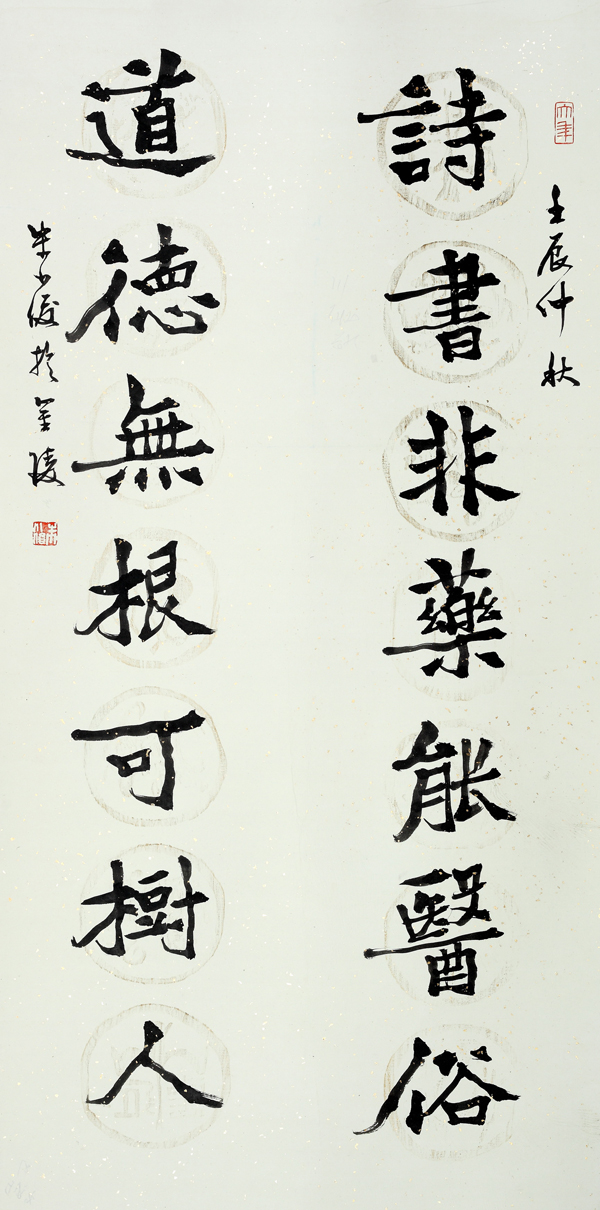 壬辰仲秋
詩書非藥能醫俗
道德無根可樹人
朱小俊於金陵